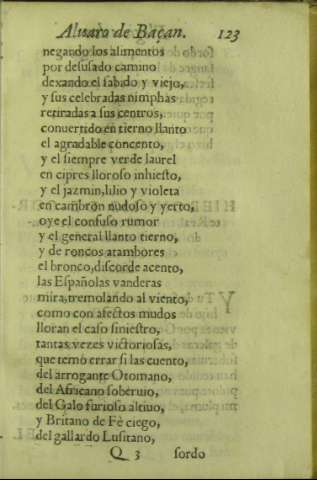 Alvaro de Baçan. 123
negando los alimentos
por desusado camino
dexando el sabido y viejo,
y sus celebradas nimphas
retiradas a sus centros,
conuertido en tierno llanto
el agradable concento,
y el siempre verde laurel
en cipres lloroso inhiesto,
y el jazmin, lilio y violeta
en cambron nudoso y yerto,
oye el confuso rumor
y el general llanto tierno,
y de roncos atambores
el bronco, discorde acento,
las Españolas vanderas
mira, tremolando al viento,
como con afectos mudos
lloran el caso siniestro,
tantas vezes victoriosas,
que temo errar si las cuento,
del arrogante Otomano,
del Africano soberuio,
del Galo furioso altiuo,
y Britano de Fè ciego,
del gallardo Lusitano,
Q 3 sordo